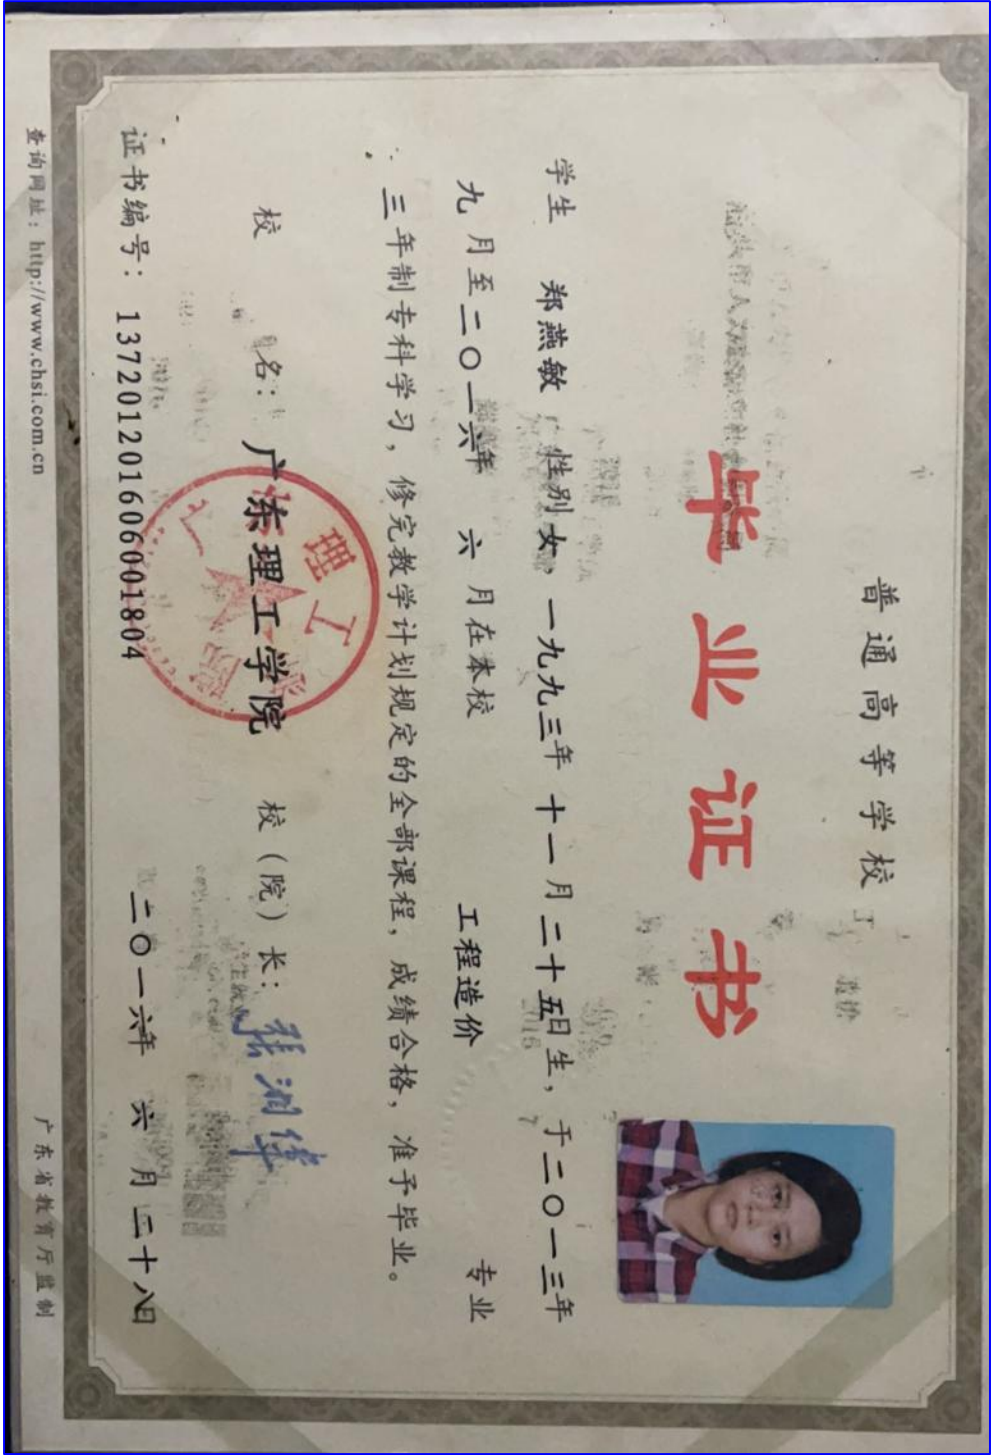 普通高等学校
毕业证书
学生 郑燕敏 性别女，一九九三年十一月二十五日生，于二〇一三年
九月至二〇一六年 六 月在本校 工程造价 专业
三年制专科学习，修完教学计划规定的全部课程，成绩合格，准予毕业。
校 名：广东理工学院 校（院）长：
二〇一六年 六 月二十八日
证书编号：137201201606001804
查询网址：http://www.chsi.com.cn 广东省教育厅监制